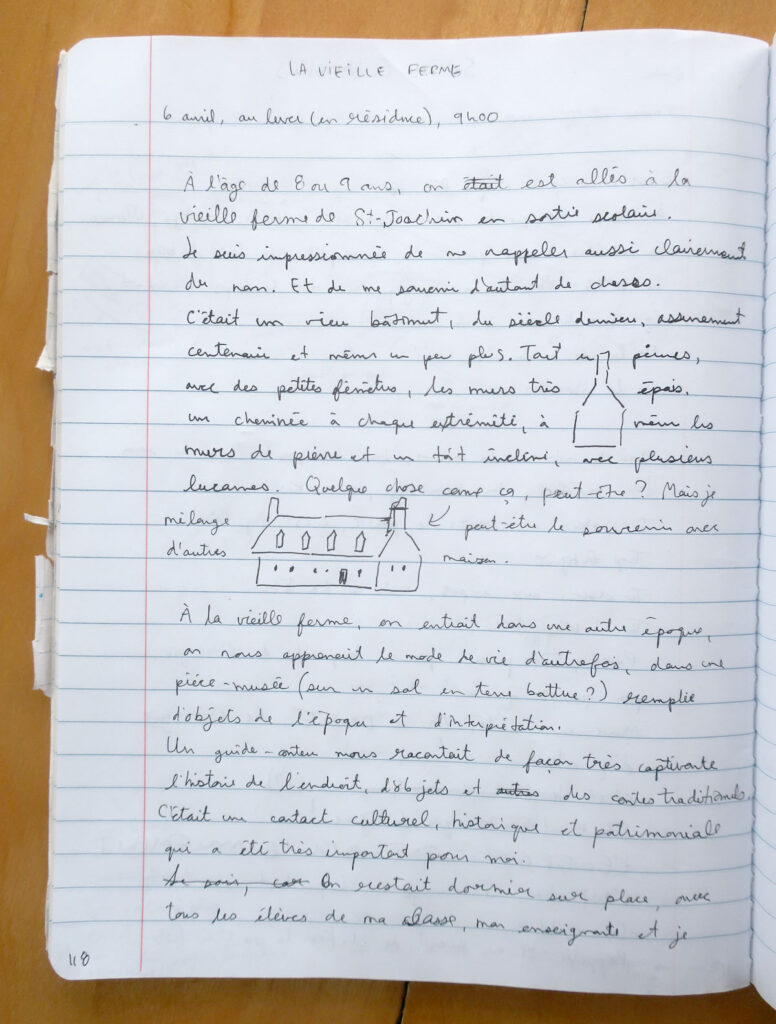 LA VIEILLE FERME
6 avril, au lever (en résidence), 9h00
À l'âge de 8 ou 9 ans, on était est allés à la
vieille ferme de St-Joachim en sortie scolaire.
Je suis impressionnée de me rappeler aussi clairement
du nom. Et de me souvenir d'autant de choses.
C'était un vieu bâtiment, du siècle dernier, assurément
centenaire et même un peu plus. Tout en pierres,
avec des petites fenêtres, les murs très épais,
une cheminée à chaque extrémité, à même les
murs de pierre et un toît incliné, avec plusieurs
lucarnes. Quelque chose comme ça, peut-être? Mais je
mélange peut-être le souvenir avec
d'autres maison.
À la vieille ferme, on entrait dans une autre époque,
on nous apprenait le mode de vie d'autrefois, dans une
pièce-musée (sur un sol en terre battue?) remplie
d'objets de l'époque et d'interprétation.
Un guide-conteur nous racontait de façon très captivante
l'histoire de l'endroit, d'objets et autres des contes traditionnels.
C'était une contact culturel, historique et patrimoniale
qui a été très important pour moi.
Le soir, car On restait dormir sur place, avec
tous les élèves de ma classe, mon enseignante et je
118